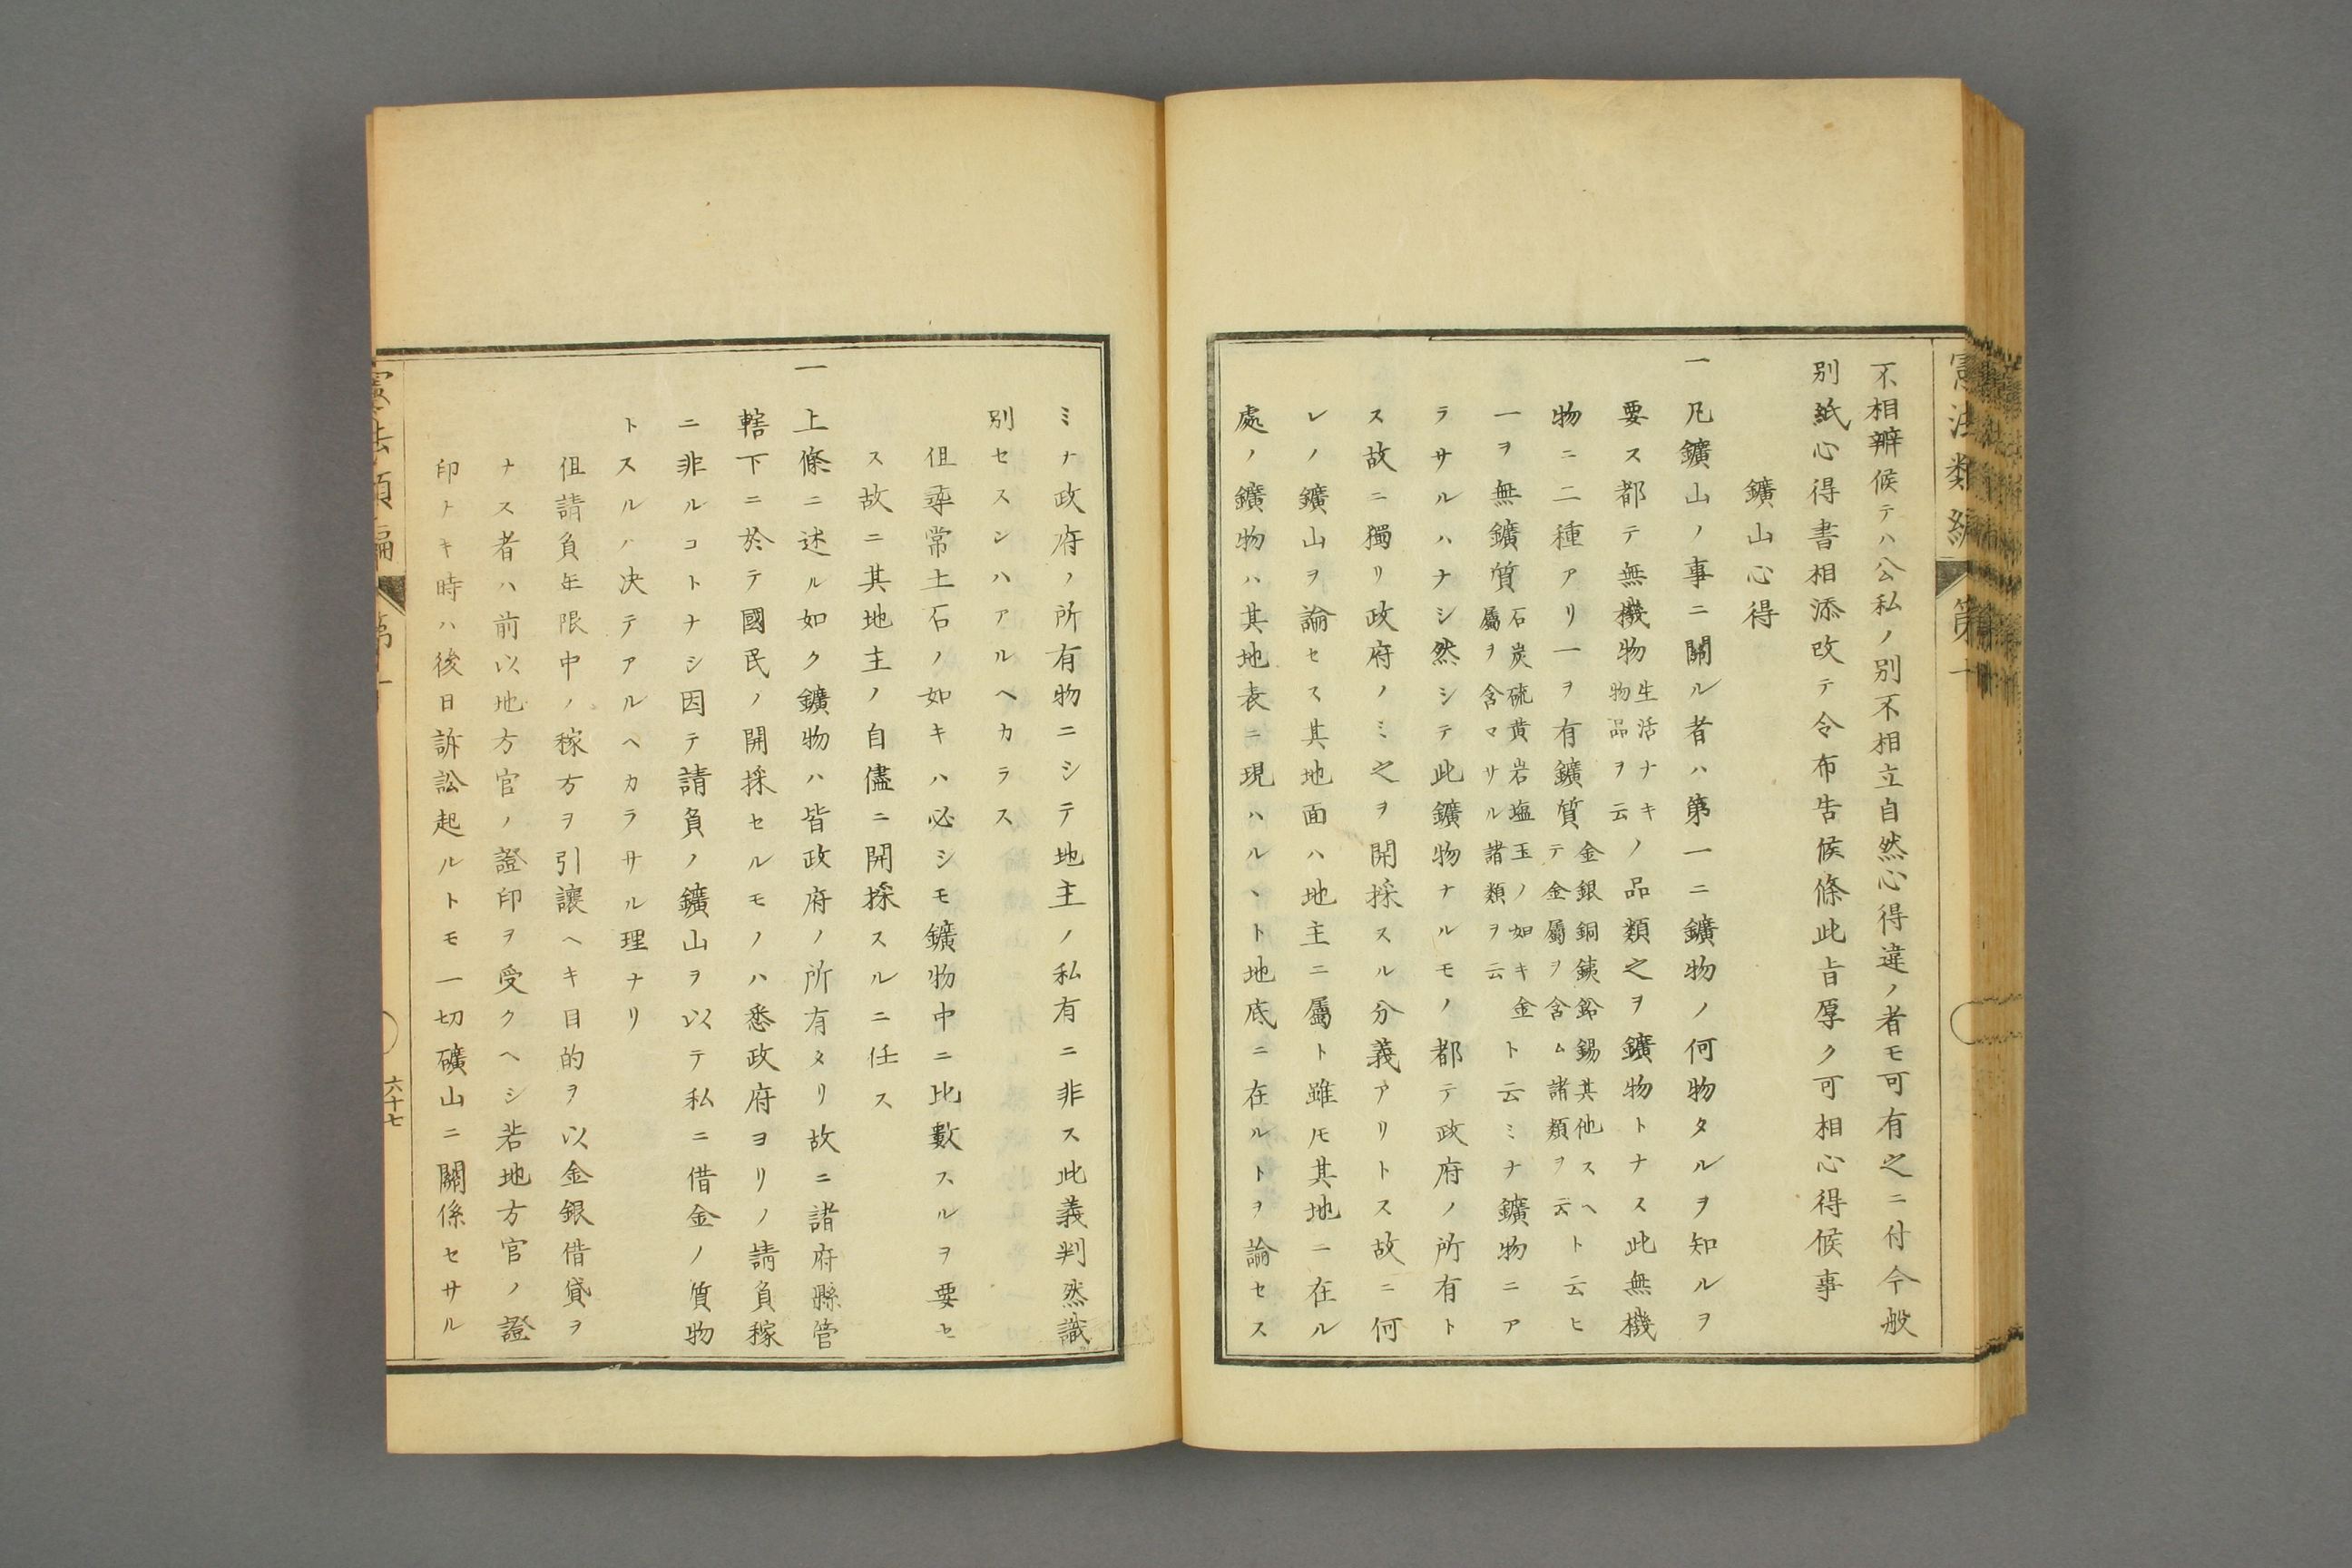 憲法類編 第十
不相辨候テハ公私ノ別不相立自然心得違ノ者モ可有之ニ付今般
別紙心得書相添改テ令布告候條此旨厚ク可相心得候事
鑛山心得
一 凡鑛山ノ事ニ關ル者ハ第一ニ鑛物ノ何物タルヲ知ルヲ
要ス都テ無機物生活ナキ物品ヲ云ノ品類之ヲ鑛物トナス此無機
物ニ二種アリ一ヲ有鑛質金銀銅銕鉛錫其他スヘテ金屬ヲ含ム諸類ヲ云ト云ヒ
一ヲ無鑛質石炭硫黄岩塩玉ノ如キ金屬ヲ含マサル諸類ヲ云ト云ミナ鑛物ニア
ラサルハナシ然シテ此鑛物ナルモノ都テ政府ノ所有ト
ス故ニ獨リ政府ノミ之ヲ開採スル分義アリトス故ニ何
レノ鑛山ヲ論セス其地面ハ地主ニ屬ト雖モ其地ニ在ル
處ノ鑛物ハ其地表ニ現ハルヽト地底ニ在ルトヲ論セス
ミナ政府ノ所有物ニシテ地主ノ私有ニ非ス此義判然識
別セスンハアルヘカラス
但尋常土石ノ如キハ必シモ鑛物中ニ比數スルヲ要セ
ス故ニ其地主ノ自儘ニ開採スルニ任ス
一 上條ニ述ル如ク鑛物ハ皆政府ノ所有タリ故ニ諸府縣管
轄下ニ於テ國民ノ開採セルモノハ悉政府ヨリノ請負稼
ニ非ルコトナシ因テ請負ノ鑛山ヲ以テ私ニ借金ノ質物
トスルハ决テアルヘカラサル理ナリ
但請負年限中ノ稼方ヲ引讓ヘキ目的ヲ以金銀借貸ヲ
ナス者ハ前以地方官ノ證印ヲ受クヘシ若地方官ノ證
印ナキ時ハ後日訴訟起ルトモ一切礦山ニ關係セサル
憲法類編 第十
六十七